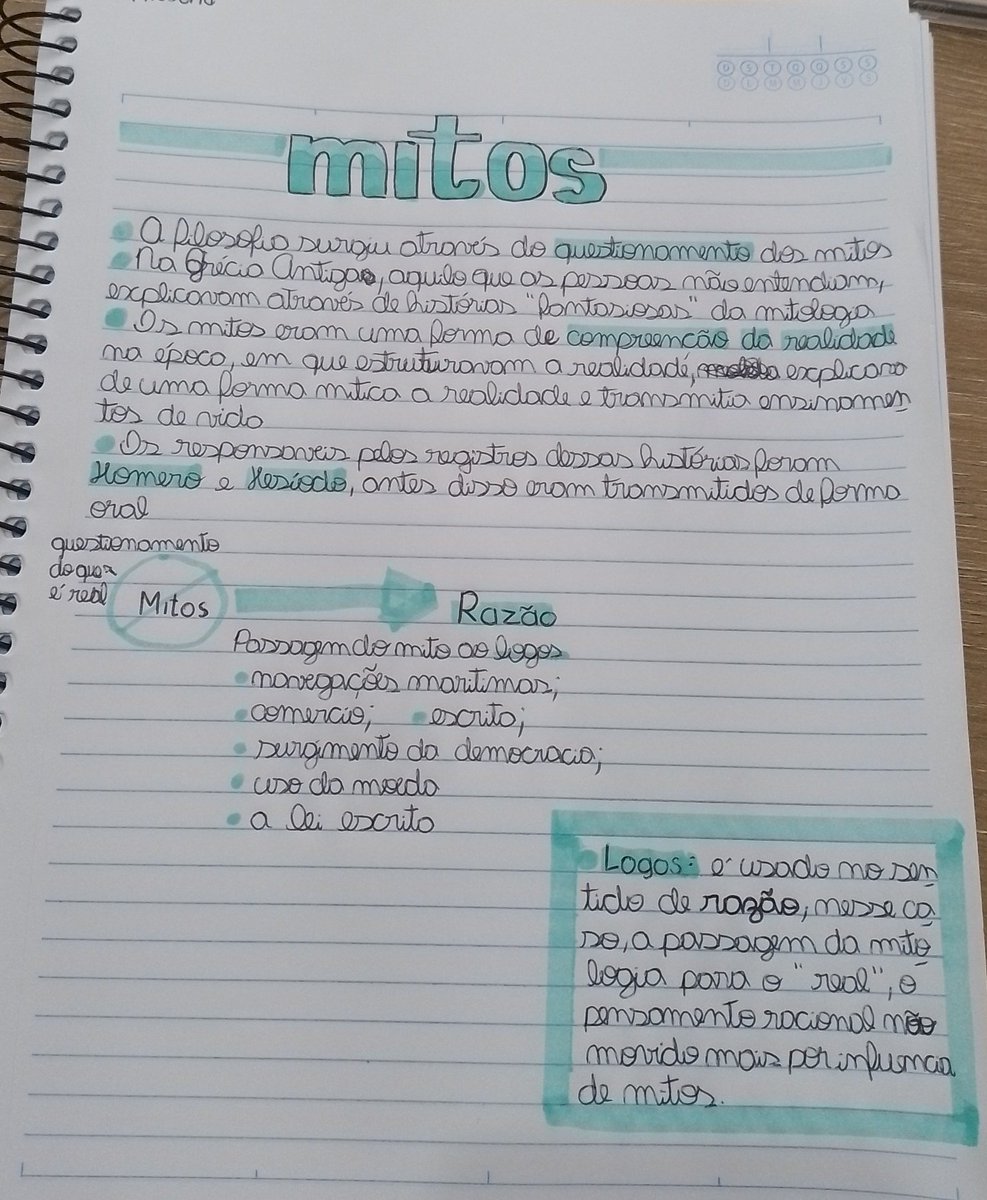 mitos
• A filosofia surgiu através do questionamento dos mitos
• Na Grécia Antiga, aquilo que as pessoas não entendiam,
explicavam através de histórias "fantasiosas" da mitologa
• Os mitos eram uma forma de compreenção da realidade
na época, em que estruturavam a realidade, explicava
de uma forma mitica a realidade e transmitia ensinamen
tos de vida
• Os responsaveis pelos registros dessas histórias foram
Homero e Hesíodo, antes disso eram transmitidos de forma
oral
questionamento
do que
é real
Mitos → Razão
Passagem do mito ao logos
• navegações maritimas;
• comercio; • escrita;
• surgimento da democracia;
• uso da moeda
• a lei escrita
• Logos: é usado no sen
tido de razão, nesse ca
so, a passagem da mito
logia para o "real", o
pensamento racional não
movido mais por influencia
de mitos.